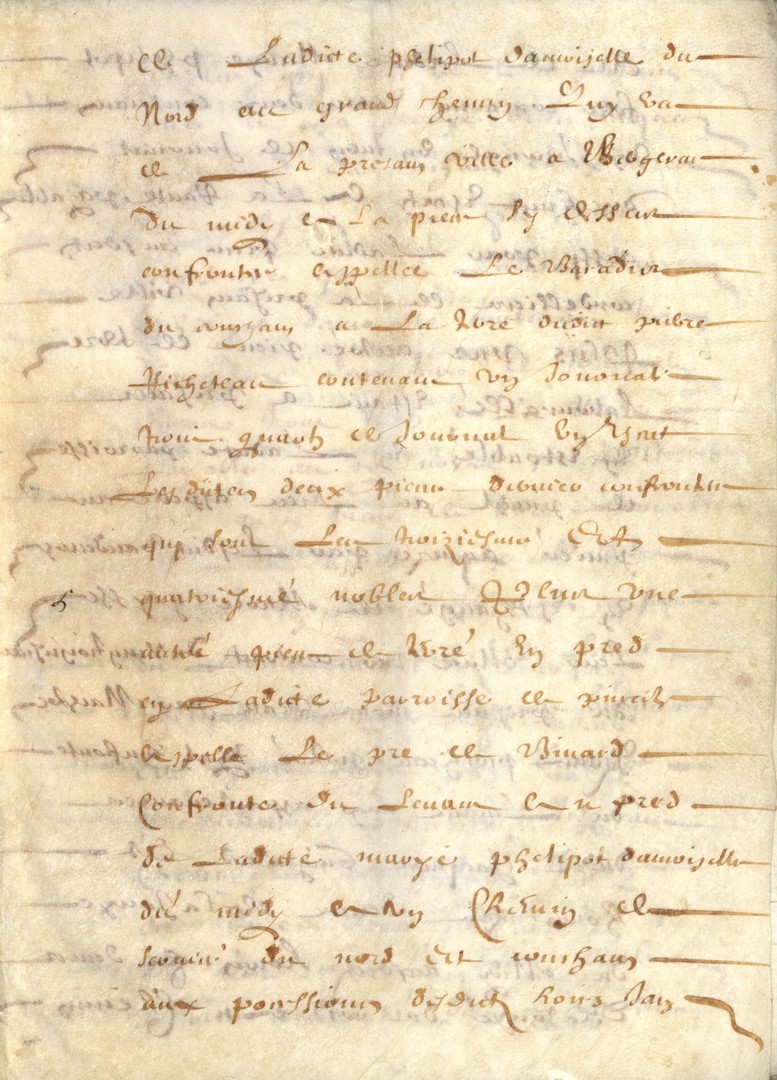 de Ladicte phelipot damoiselle du
Nord au grand chemin Quy va
de La presant ville a Bergerac
du midy a La piece cy dessus
confrontee appellee Le Baradis
du couchant a La terre dudict pierre
Richeteau contenant un Journal
trois quartz de Journal
Lesdites deux pieces dernier confrontees
quy sont Les troiziesme Et
quatriesme nobles une
autre piece de terre En pred
en Ladicte parroisse de
appelle Le pre de Binard
Confronte du Levant a un pred
de Ladicte marye phelipot damoiselle
du midy a un Chemin de
du nord et couchant
aux pocessions desdictz hoirs Jan